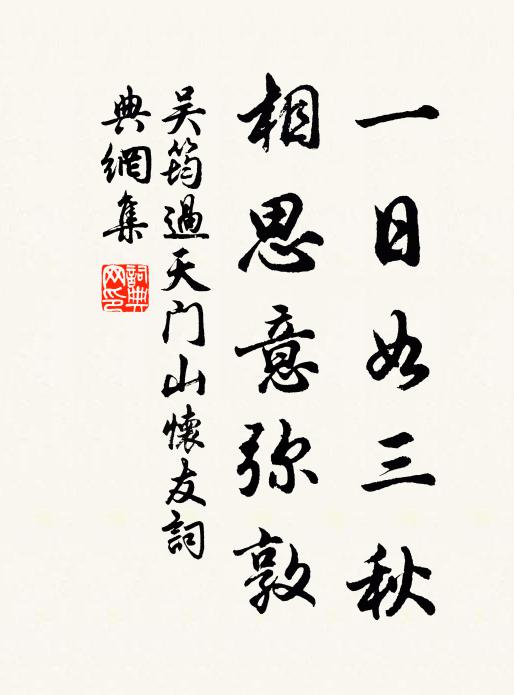 一日如三秋
相思意弥敦
吴筠過天门山懷友詞
典網集
詞典
网印